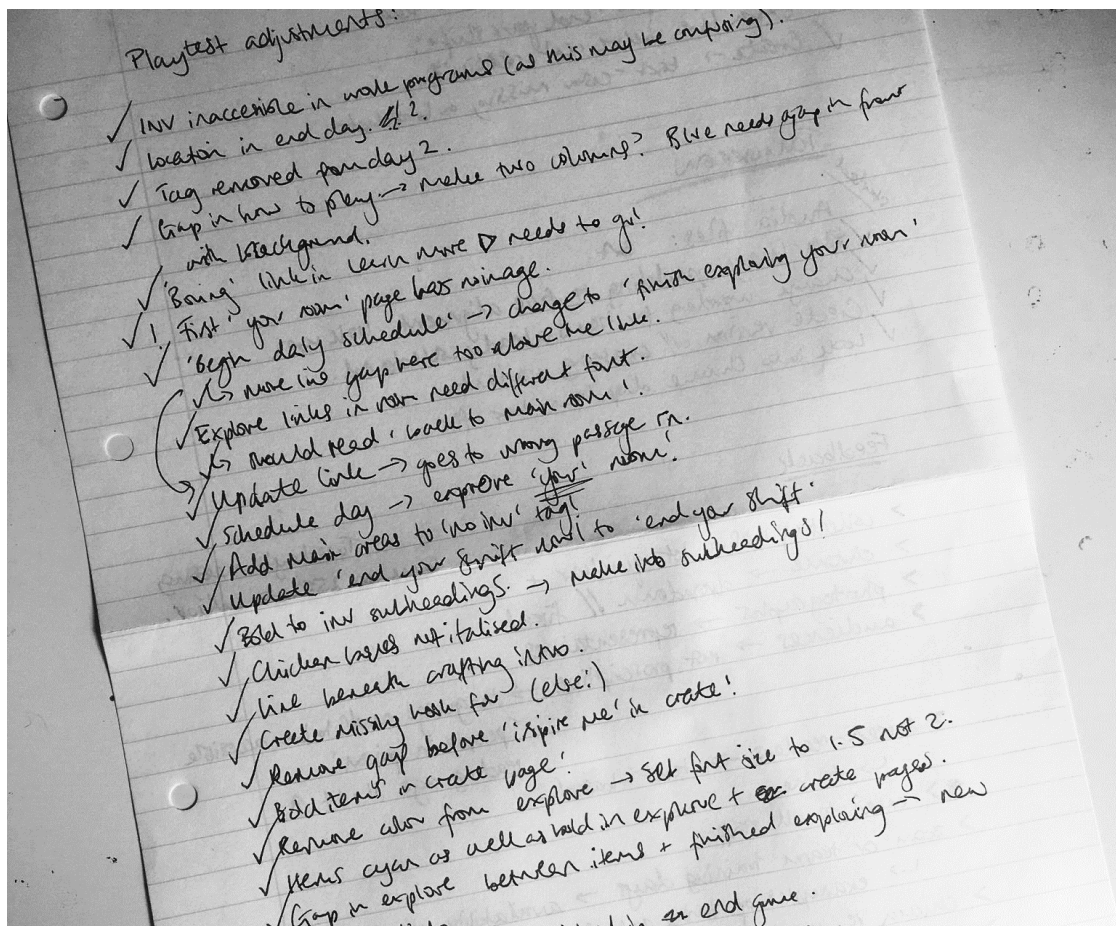 Playtest adjustments:
✓ INV inaccessible in work programs (as this may be confusing).
✓ Location in end day. 2?
✓ Tag removed from day 2.
✓ Gap in how to play → make two columns? Blue needs gap in front
with background.
✓ 'Boring' link in learn more ▷ needs to go!
✓ ! First 'your room' page has no image.
✓ 'Begin daily schedule' → change to 'finish exploring your room'
↳ more line gap here too above the link.
✓ Explore links in room need different font.
↳ should read 'back to main room'!
✓ Update link → goes to wrong passage rn.
✓ Schedule day → explore 'your' room!
✓ Add main areas to 'no inv' tag!
✓ Update 'end your shift now' to 'end your shift'.
✓ Bold to inv subheadings. → make into subheadings!
✓ Chicken italised.
✓ Line beneath crafting intro.
✓ Create missing hook for (else:)
✓ Remove gap before 'inspire me' in crate!
✓ Bold items in crate page!
✓ Remove color from explore → set font size to 1.5 not 2.
✓ Items cyan as well as bold in explore + create pages.
✓ Gap in explore between items + finished exploring → new
end game